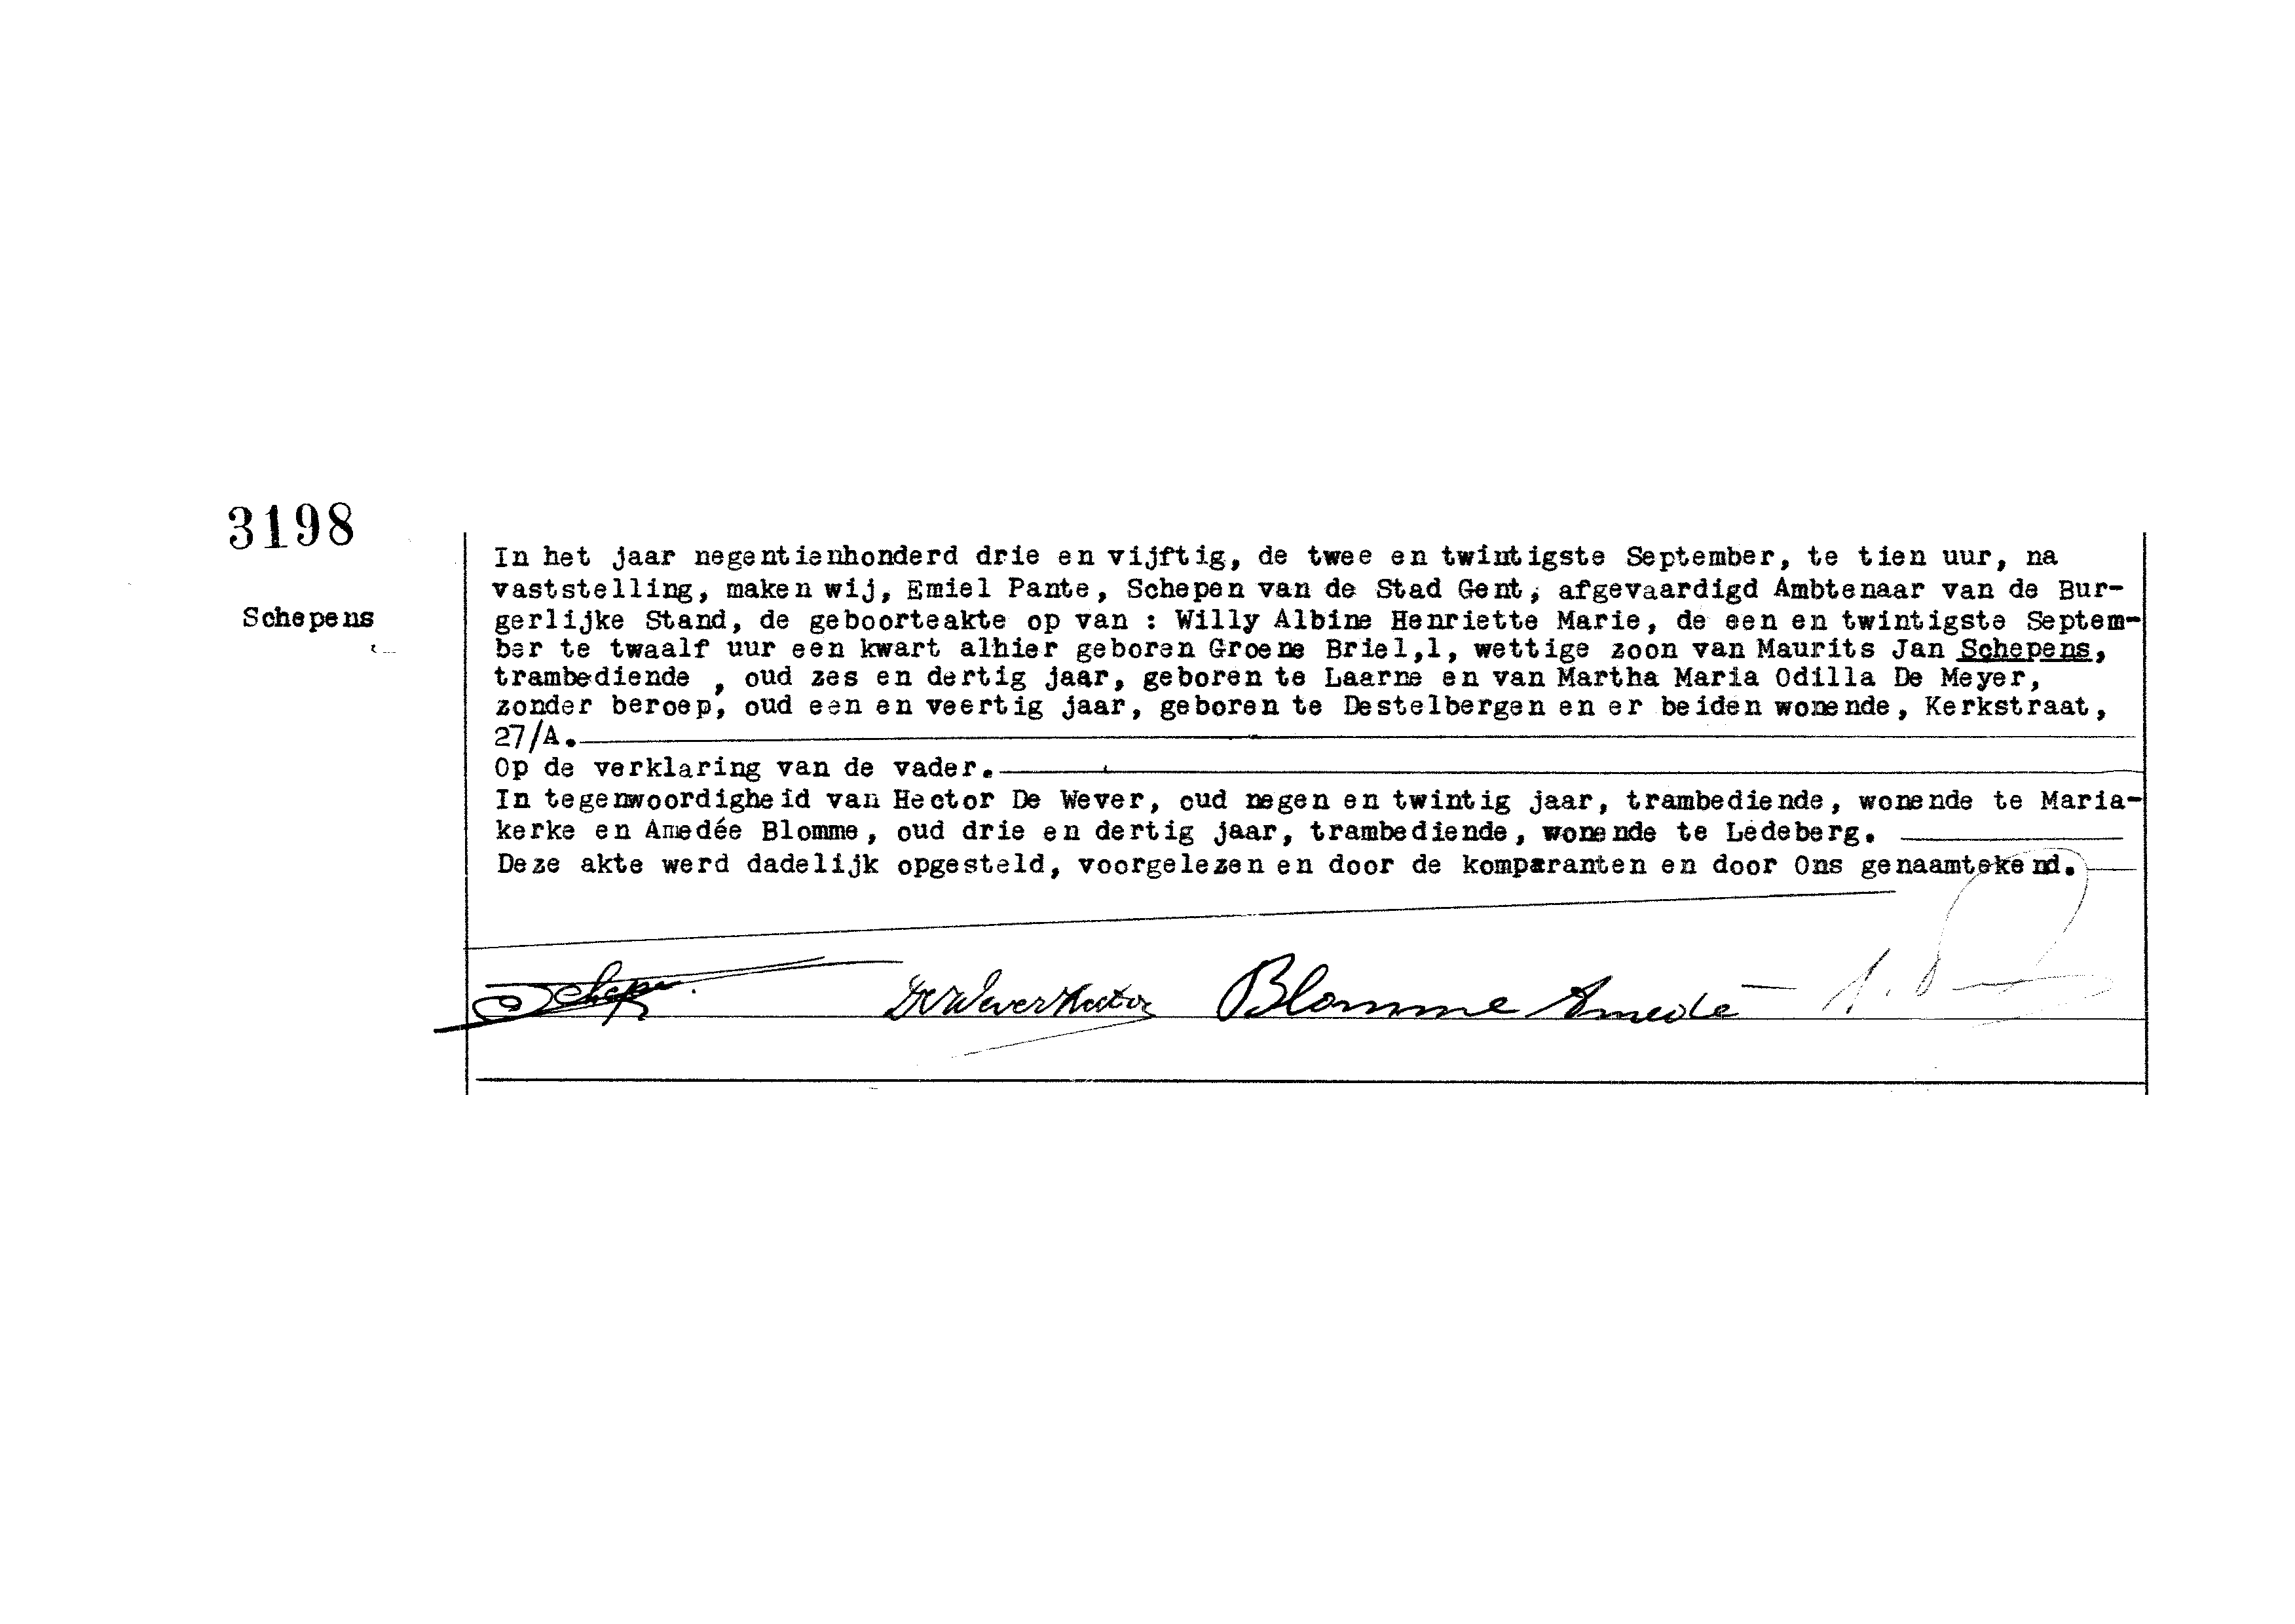 3198
Schepens
In het jaar negentienhonderd drie en vijftig, de twee en twintigste September, te tien uur, na
vaststelling, maken wij, Emiel Pante, Schepen van de Stad Gent, afgevaardigd Ambtenaar van de Bur-
gerlijke Stand, de geboorteakte op van : Willy Albine Henriette Marie, de een en twintigste Septem-
ber te twaalf uur een kwart alhier geboren Groene Briel,1, wettige zoon van Maurits Jan Schepens,
trambediende , oud zes en dertig jaar, geboren te Laarne en van Martha Maria Odilla De Meyer,
zonder beroep, oud een en veertig jaar, geboren te Destelbergen en er beiden wonende, Kerkstraat,
27/A.
Op de verklaring van de vader.
In tegenwoordigheid van Hector De Wever, oud negen en twintig jaar, trambediende, wonende te Maria-
kerke en Amedée Blomme, oud drie en dertig jaar, trambediende, wonende te Ledeberg.
Deze akte werd dadelijk opgesteld, voorgelezen en door de komparanten en door Ons genaamtekend.
De Wever Hector Blomme Amede